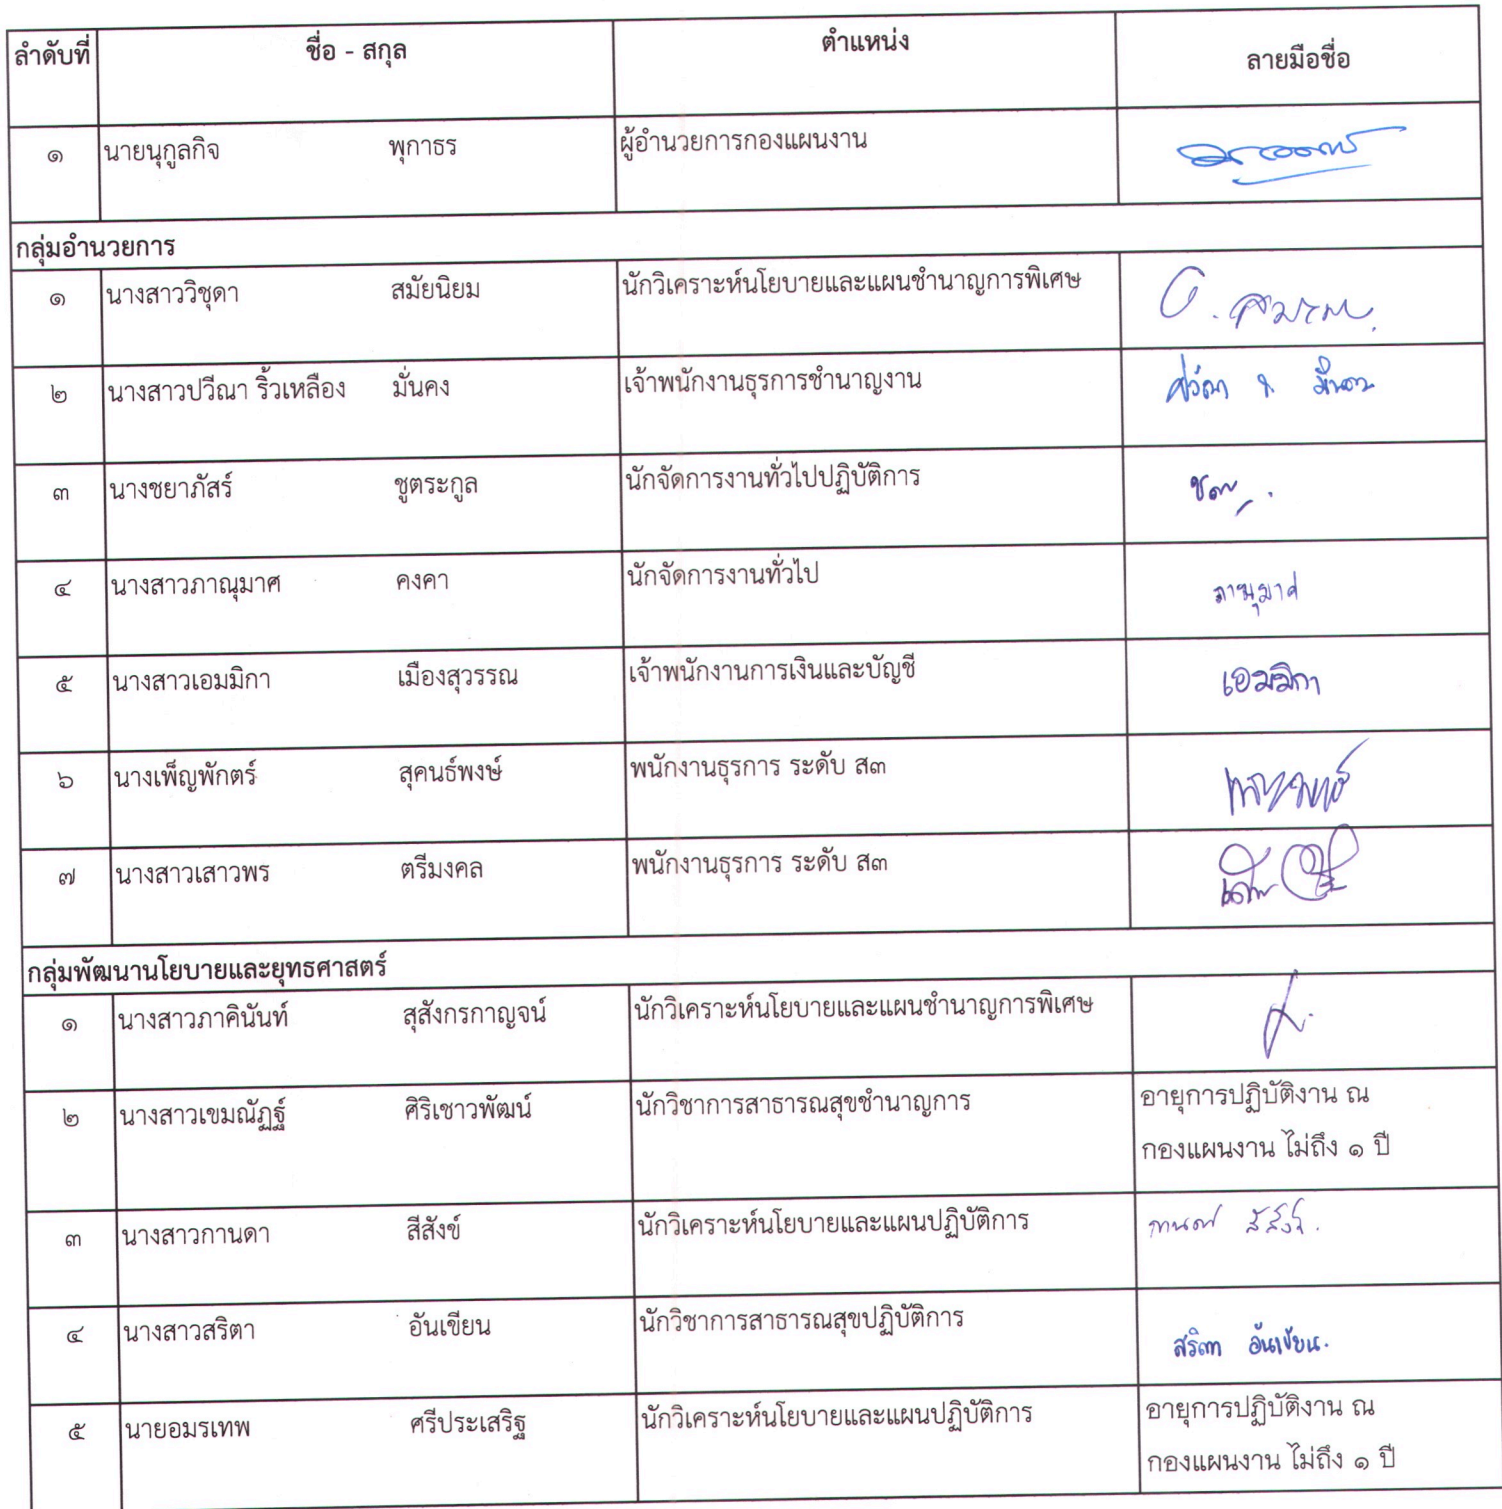 ลำดับที่ ชื่อ - สกุล ตำแหน่ง ลายมือชื่อ
๑ นายนุกูลกิจ พุกาธร ผู้อำนวยการกองแผนงาน
กลุ่มอำนวยการ
๑ นางสาววิชุดา สมัยนิยม นักวิเคราะห์นโยบายและแผนชำนาญการพิเศษ
๒ นางสาวปวีณา ริ้วเหลือง มั่นคง เจ้าพนักงานธุรการชำนาญงาน
๓ นางชยาภัสร์ ชูตระกูล นักจัดการงานทั่วไปปฏิบัติการ
๔ นางสาวภาณุมาศ คงคา นักจัดการงานทั่วไป ภาณุมาศ
๕ นางสาวเอมมิกา เมืองสุวรรณ เจ้าพนักงานการเงินและบัญชี เอมมิกา
๖ นางเพ็ญพักตร์ สุคนธ์พงษ์ พนักงานธุรการ ระดับ ส๓
๗ นางสาวเสาวพร ตรีมงคล พนักงานธุรการ ระดับ ส๓
กลุ่มพัฒนานโยบายและยุทธศาสตร์
๑ นางสาวภาคินันท์ สุสังกรกาญจน์ นักวิเคราะห์นโยบายและแผนชำนาญการพิเศษ
๒ นางสาวเขมณัฏฐ์ ศิริเชาวพัฒน์ นักวิชาการสาธารณสุขชำนาญการ อายุการปฏิบัติงาน ณ
กองแผนงาน ไม่ถึง ๑ ปี
๓ นางสาวกานดา สีสังข์ นักวิเคราะห์นโยบายและแผนปฏิบัติการ กานดา สีสังข์.
๔ นางสาวสริตา อันเขียน นักวิชาการสาธารณสุขปฏิบัติการ สริตา อันเขียน.
๕ นายอมรเทพ ศรีประเสริฐ นักวิเคราะห์นโยบายและแผนปฏิบัติการ อายุการปฏิบัติงาน ณ
กองแผนงาน ไม่ถึง ๑ ปี